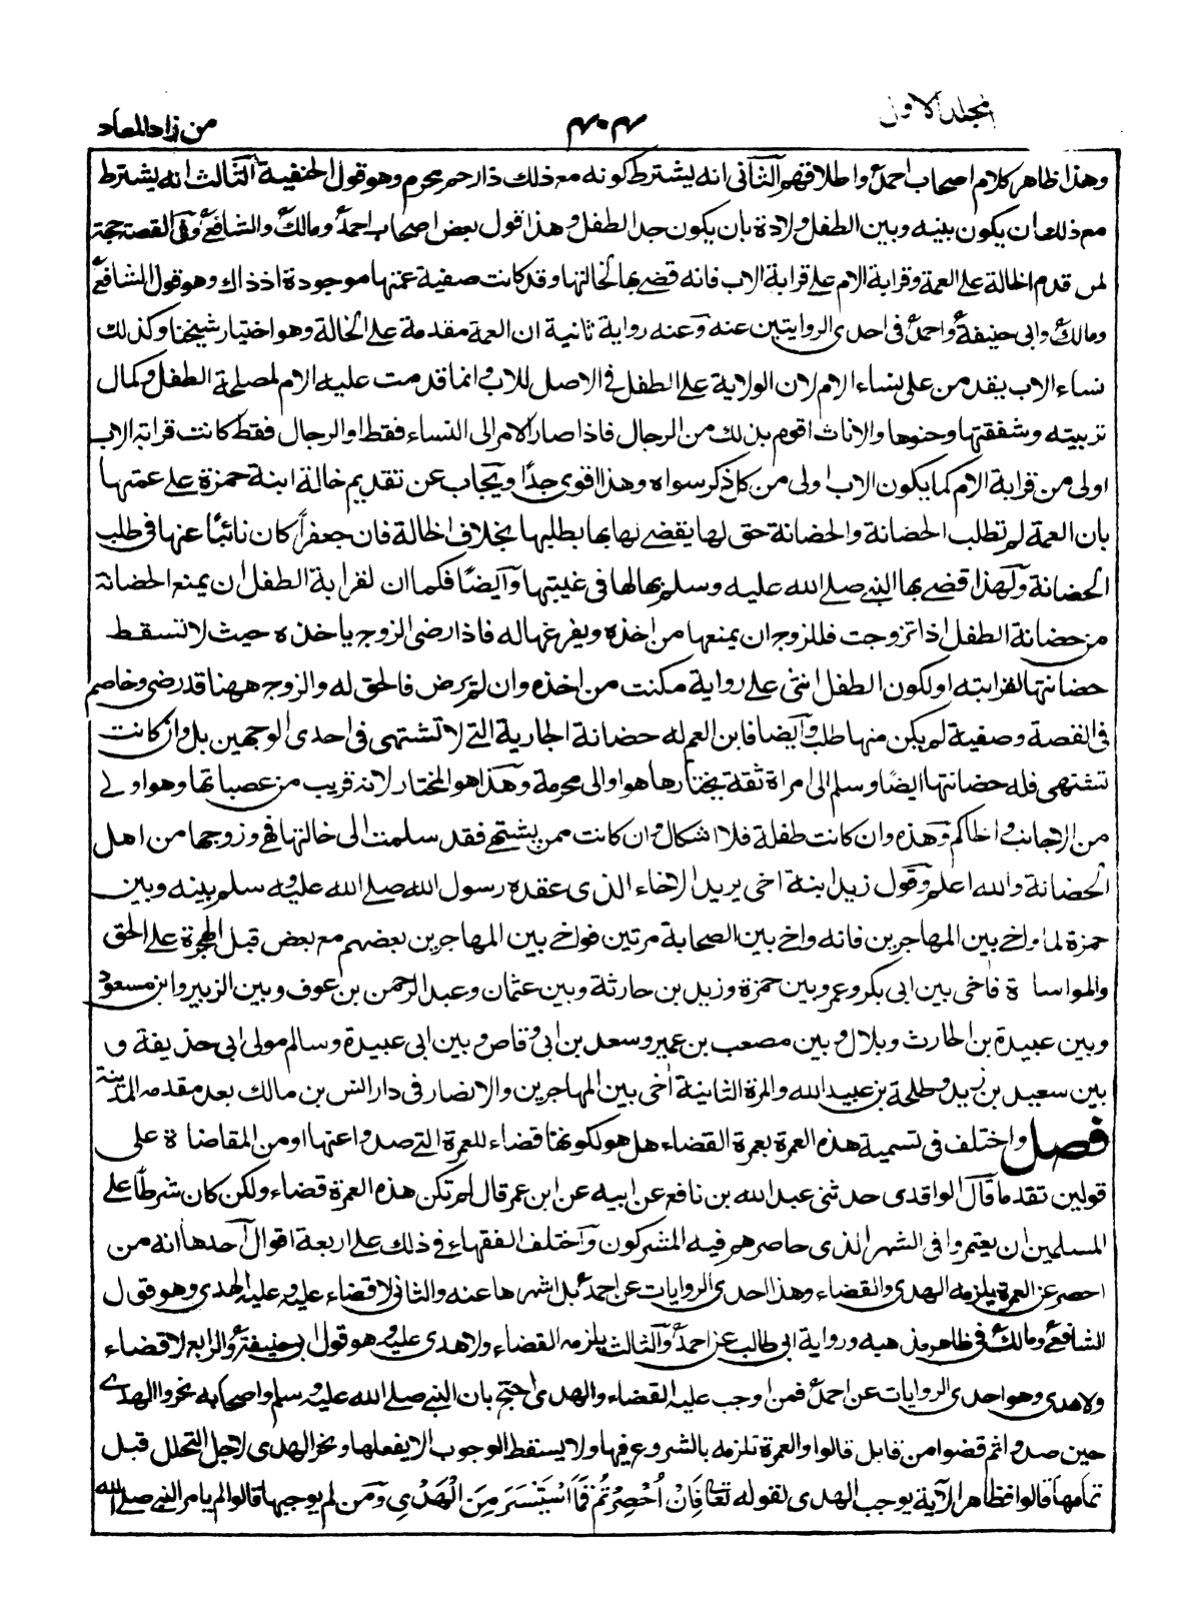 المجلد الاول
٤٠٤
من زاد المعاد
وهذا ظاهر كلام اصحاب احمد واطلاقهم الثانى انه يشترط كونه مع ذلك ذا رحم محرم وهو قول الحنفية الثالث انه يشترط
مع ذلك ان يكون بينه وبين الطفل ولادة بان يكون جد الطفل وهذا قول بعض اصحاب احمد ومالك والشافعى وفى القصة حجة
لمن قدم الخالة على العمة وقرابة الام على قرابة الاب فانه قضى بها لخالتها وقد كانت صفية عمتها موجودة اذ ذاك وهو قول الشافعى
ومالك وابى حنيفة واحمد فى احدى الروايتين عنه وعنه رواية ثانية ان العمة مقدمة على الخالة وهو اختيار شيخنا وكذلك
نساء الاب يقدمن على نساء الام لان الولاية على الطفل فى الاصل للاب وانما قدمت عليه الام لمصلحة الطفل وكمال
تربيته وشفقتها وحنوها والاناث اقوم بذلك من الرجال فاذا صار الامر الى النساء فقط او الرجال فقط كانت قرابة الاب
اولى من قرابة الام كما يكون الاب اولى من كل ذكر سواه وهذا اقوى جدًا ويجاب عن تقديم خالة ابنة حمزة على عمتها
بان العمة لم تطلب الحضانة والحضانة حق لها يقضى لها بها بطلبها بخلاف الخالة فان جعفرًا كان نائبًا عنها فى طلب
الحضانة ولهذا قضى بها النبى صلى الله عليه وسلم بها لها فى غيبتها وايضًا فكما ان لقرابة الطفل ان يمنع الحضانة
من حضانة الطفل اذا تزوجت فللزوج ان يمنعها من اخذه ويفرغها له فاذا رضى الزوج ياخذه حيث لا تسقط
حضانتها لقرابته او لكون الطفل انثى على رواية مكنت من اخذه وان لم يرض فالحق له والزوج ههنا قد رضى وخاصم
فى القصة وصفية لم يكن منها طلب وايضا فابن العم له حضانة الجارية التى لا تشتهى فى احدى الوجهين بل وان كانت
تشتهى فله حضانتها ايضًا وسلم الى امراة ثقة يختارها هو او الى محرمة وهذا هو المختار لانه قريب من عصباتها وهو اولى
من الاجانب والحاكم وهذه وان كانت طفلة فلا اشكال وان كانت ممن يشتهى فقد سلمت الى خالتها فهى وزوجها من اهل
الحضانة والله اعلم وقول زيد ابنة اخى يريد الاخاء الذى عقده رسول الله صلى الله عليه وسلم بينه وبين
حمزة لما واخى بين المهاجرين فانه واخى بين الصحابة مرتين فواخى بين المهاجرين بعضهم مع بعض قبل الهجرة على الحق
والمواساة فاخى بين ابى بكر وعمر وبين حمزة وزيد بن حارثة وبين عثمان وعبد الرحمن بن عوف وبين الزبير وابن مسعود
وبين عبيدة بن الحارث وبلال وبين مصعب بن عمير وسعد بن ابى وقاص وبين ابى عبيدة وسالم مولى ابى حذيفة و
بين سعيد بن زيد وطلحة بن عبيد الله والمرة الثانية اخى بين المهاجرين والانصار فى دار انس بن مالك بعد مقدمه المدينة
فصل واختلف فى تسمية هذه العمرة بعمرة القضاء هل هو لكونها قضاء للعمرة التى صدوا عنها او من المقاضاة على
قولين تقدما قال الواقدى حدثنى عبد الله بن نافع عن ابيه عن ابن عمر قال لم تكن هذه العمرة قضاء ولكن كان شرطًا على
المسلمين ان يعتمروا فى الشهر الذى حاصرهم فيه المشركون واختلف الفقهاء فى ذلك على اربعة اقوال احدها انه من
احصر عن العمرة يلزمه الهدى والقضاء وهذا احدى الروايات عن احمد بل اشهرها عنه والثانى لا قضاء عليه وعليه الهدى وهو قول
الشافعى ومالك فى ظاهر مذهبه ورواية ابى طالب عن احمد والثالث يلزمه القضاء ولا هدى عليه وهو قول ابى حنيفة والرابع لا قضاء
ولا هدى وهو احدى الروايات عن احمد فمن اوجب عليه القضاء والهدى احتج بان النبى صلى الله عليه وسلم واصحابه نحروا الهدى
حين صدوا ثم قضوا من قابل قالوا والعمرة تلزمه بالشروع فيها ولا يسقط الوجوب الا بفعلها ونحر الهدى لاجل التحلل قبل
تمامها قالوا فظاهر الآية يوجب الهدى لقوله تعا فَاِنْ اُحْصِرْتُمْ فَمَا اسْتَيْسَرَ مِنَ الْهَدْىِ ومن لم يوجبها قالوا لم يامر النبى صلى الله